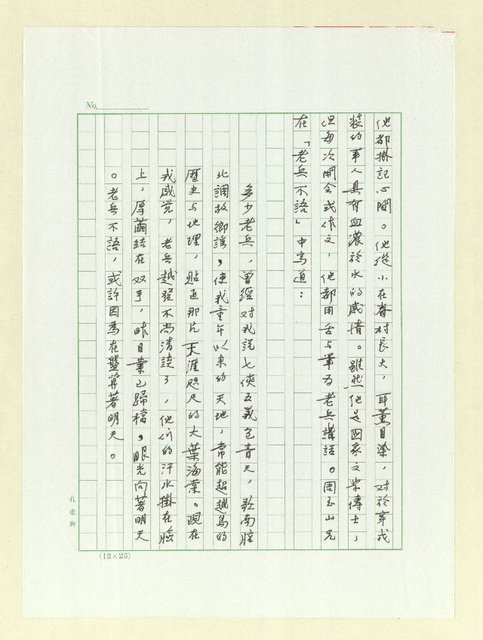 No.
他都掛記心間。他從小在眷村長大，耳薰目染，對於穿戎
裝的軍人具有血濃於水的感情。雖然他是國家文學博士，
但每次開會或作文，他都用舌與筆為老兵講話。周玉山兄
在「老兵不語」中寫道：
多少老兵，曾經對我說七俠五義包青天，歌南腔
北調故鄉謠，使我童年以來的天地，常能超越島的
歷史與地理，貼近那片天涯咫尺的大葉海棠。現在
我感覺，老兵越發不尚清談了，他們的汗水掛在臉
上，厚繭結在双手，昨日業已歸檔，眼光向著明天
。老兵不語，或許因為在盤算著明天。
(12×25)